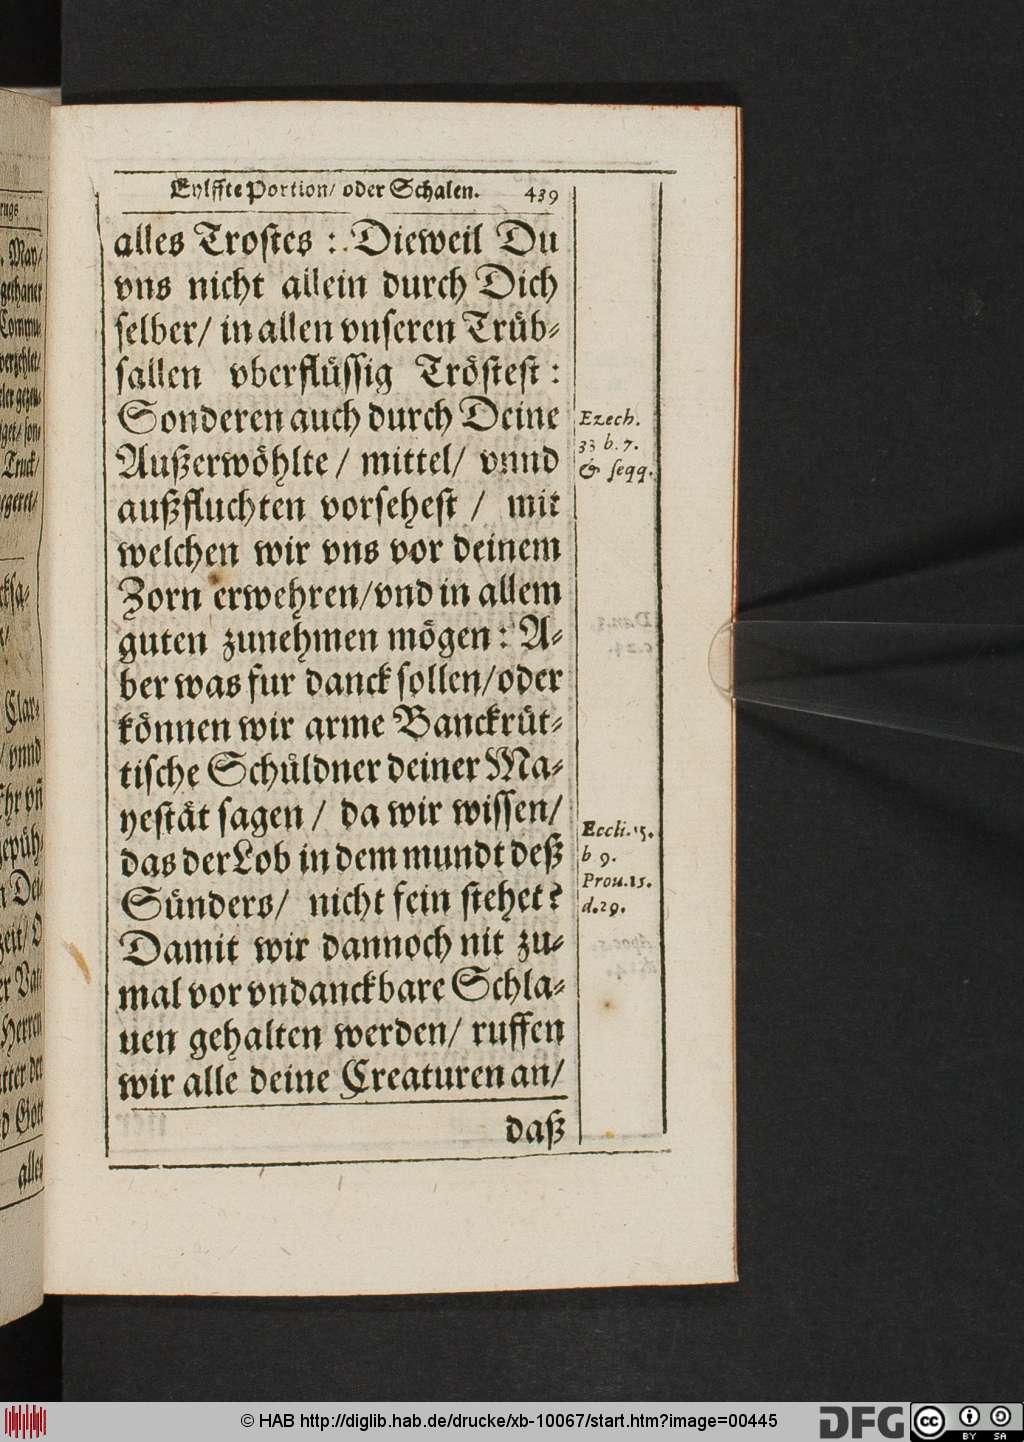 Eylffte Portion/ oder Schalen. 439
alles Trostes : Dieweil Du
vns nicht allein durch Dich
selber/ in allen vnseren Trüb-
sallen vberflüssig Tröstest :
Sonderen auch durch Deine
Außerwöhlte / mittel/ vnnd
außfluchten vorsehest / mit
welchen wir vns vor deinem
Zorn erwehren/vnd in allem
guten zunehmen mögen : A-
ber was fur danck sollen/oder
können wir arme Banckrüt-
tische Schüldner deiner Ma-
yestät sagen / da wir wissen/
das der Lob in dem mundt deß
Sünders/ nicht fein stehet?
Damit wir dannoch nit zu-
mal vor vndanckbare Schla-
uen gehalten werden/ ruffen
wir alle deine Creaturen an/
daß
Ezech.
33 b. 7.
& seqq.
Eccli. 15.
b 9.
Prou. 15.
d. 29.
. May/
gethaner
Commu-
Truck/
Clar-
/ vnnd
Dei-
zeit/ O
er Vat-
Herren
tter der
d Gott
alles
© HAB http://diglib.hab.de/drucke/xb-10067/start.htm?image=00445
DFG
cc
BY SA